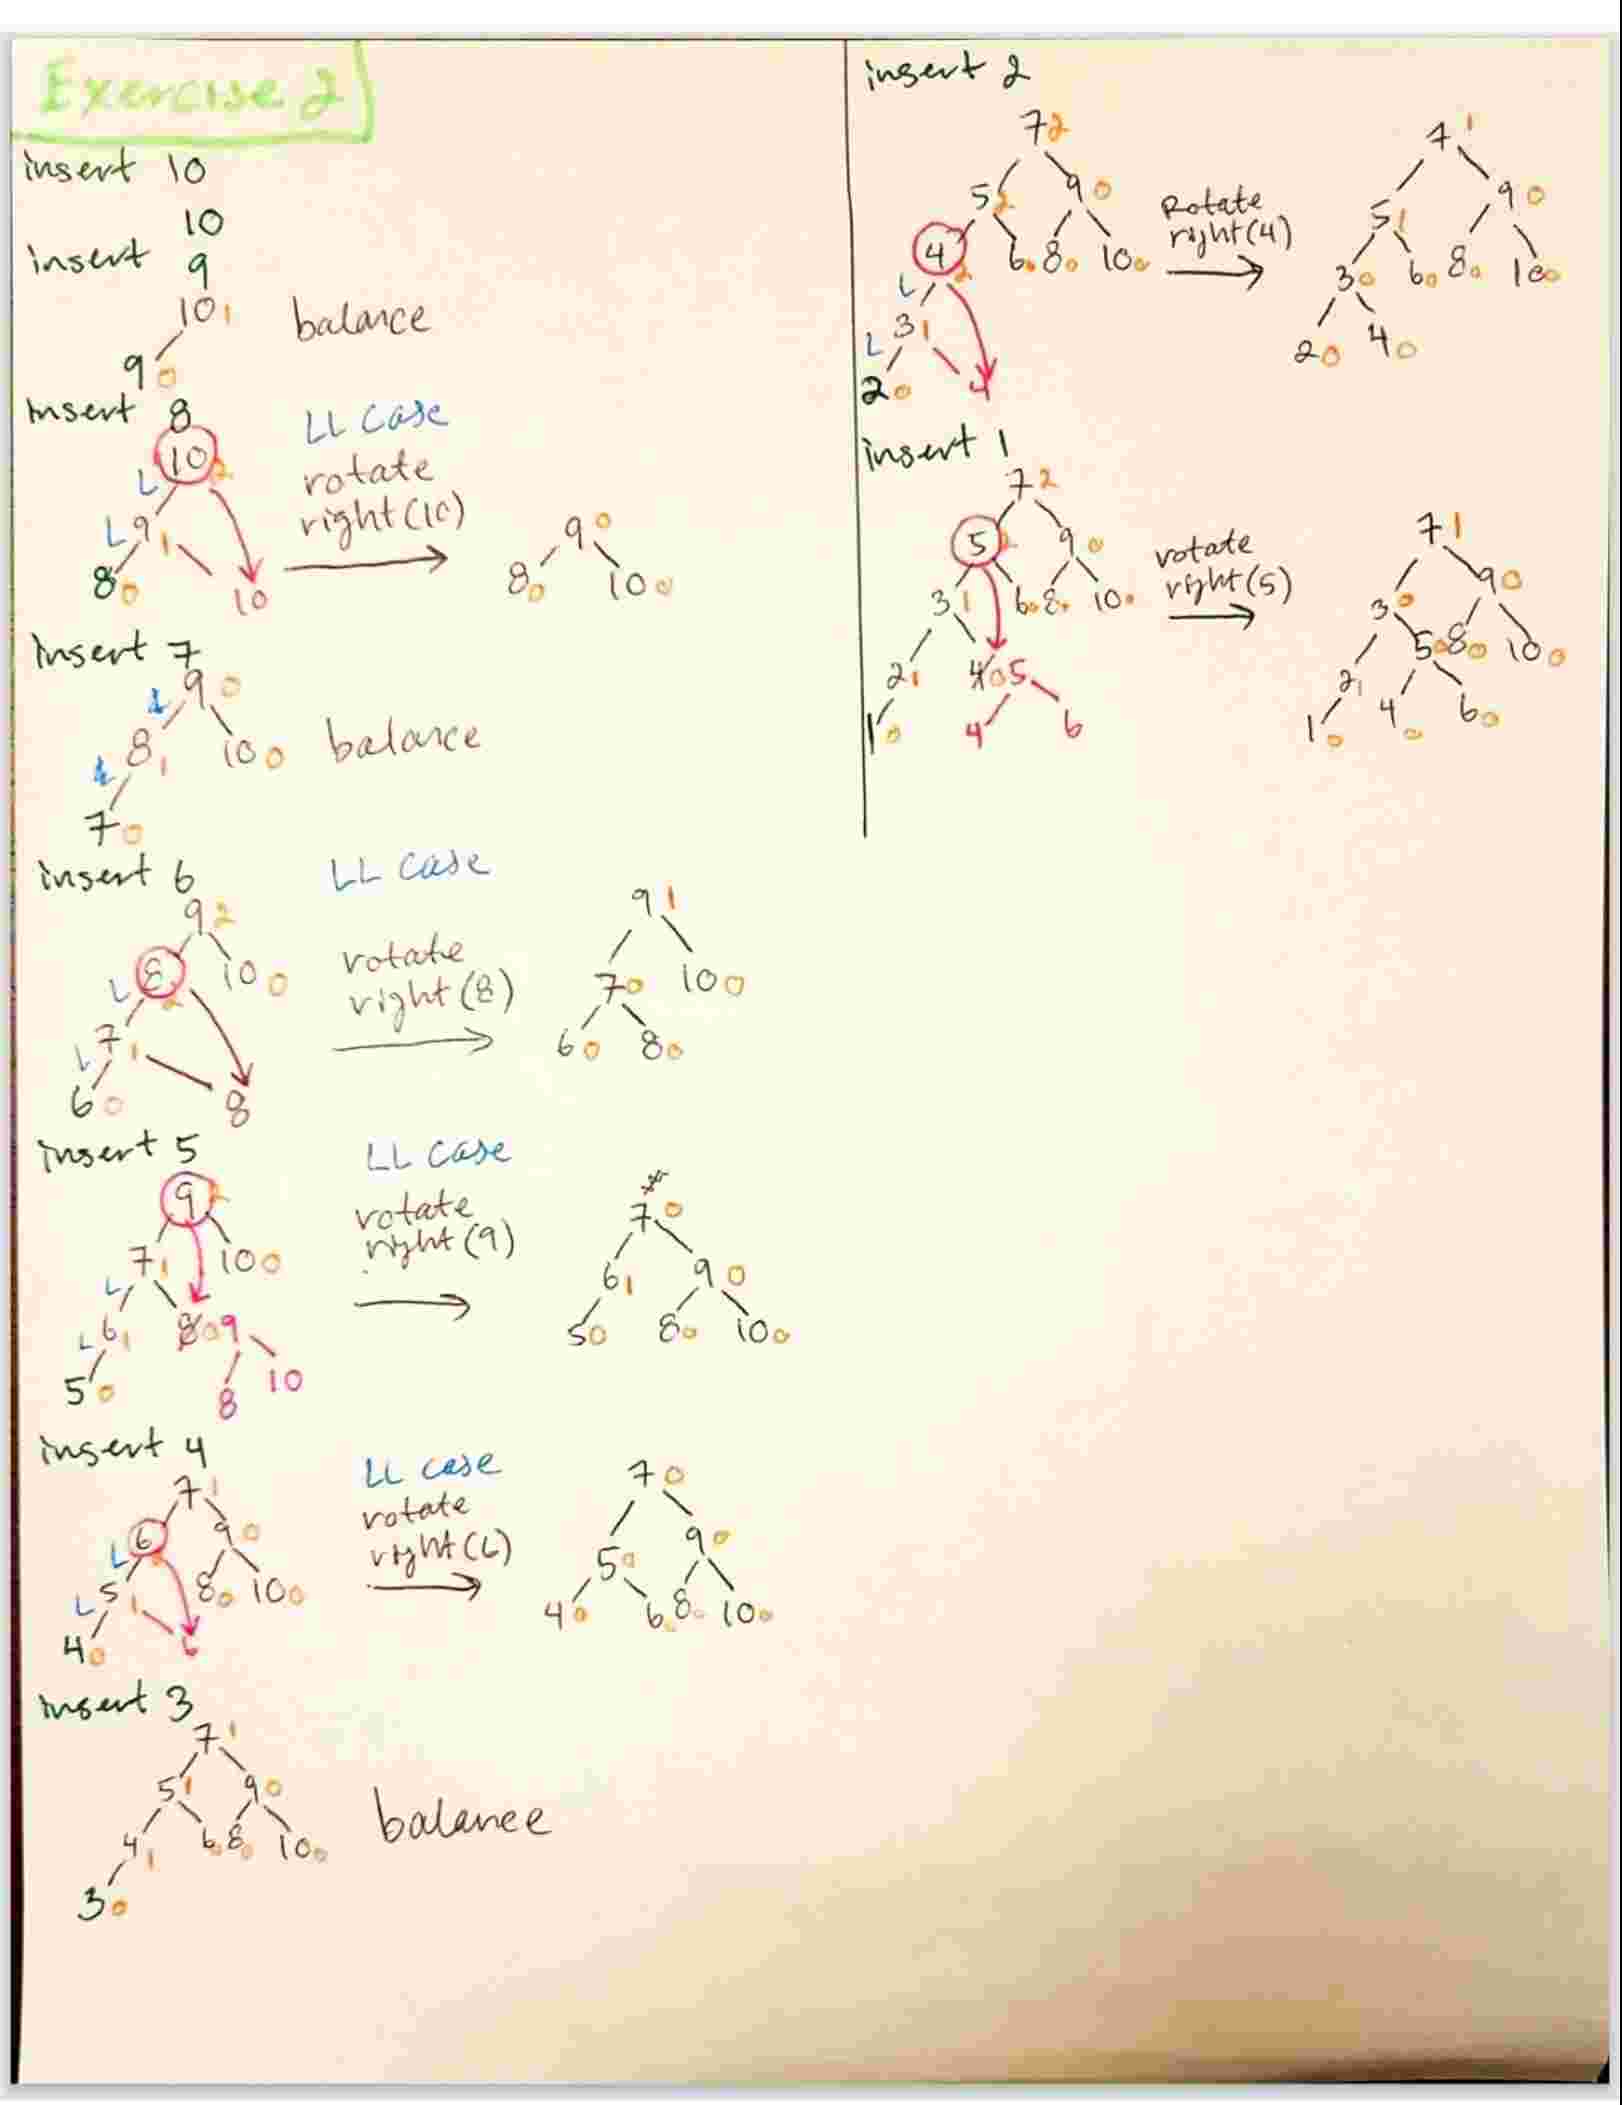 Exercise 2
insert 10
10
insert 9
10 1
balance
9 0
insert 8
LL case
10 2
L
rotate
right(10)
L 9 1
9 0
8 0
10
8 0 10 0
insert 7
9 0
8 1 10 0
balance
7 0
insert 6
LL case
9 2
9 1
L 8 2 10 0
rotate
right(8)
7 0 10 0
L 7 1
6 0 8 0
6 0 8
insert 5
LL case
9 2
rotate
right(9)
7 0
7 1 10 0
L
6 1 9 0
L 6 1 8 0 9
5 0 8 0 10 0
5 0 8 10
insert 4
LL case
7 1
rotate
right(6)
7 0
6 9 0
L
5 0 9 0
L 5 1 8 0 10 0
4 0 6 0 8 0 10 0
4 0 6
insert 3
7 1
5 1 9 0
balance
4 1 6 0 8 0 10 0
3 0
insert 2
7 2
7 1
5 2 9 0
Rotate
right(4)
5 1 9 0
4 2 6 0 8 0 10 0
3 0 6 0 8 0 10 0
L
L 3 1
2 0 4 0
2 0 4
insert 1
7 2
7 1
5 2 9 0
rotate
right(5)
3 0 9 0
3 1 6 0 8 0 10 0
5 0 8 0 10 0
2 1 4 0 5
2 1 4 0 6 0
1 0 4 6
1 0